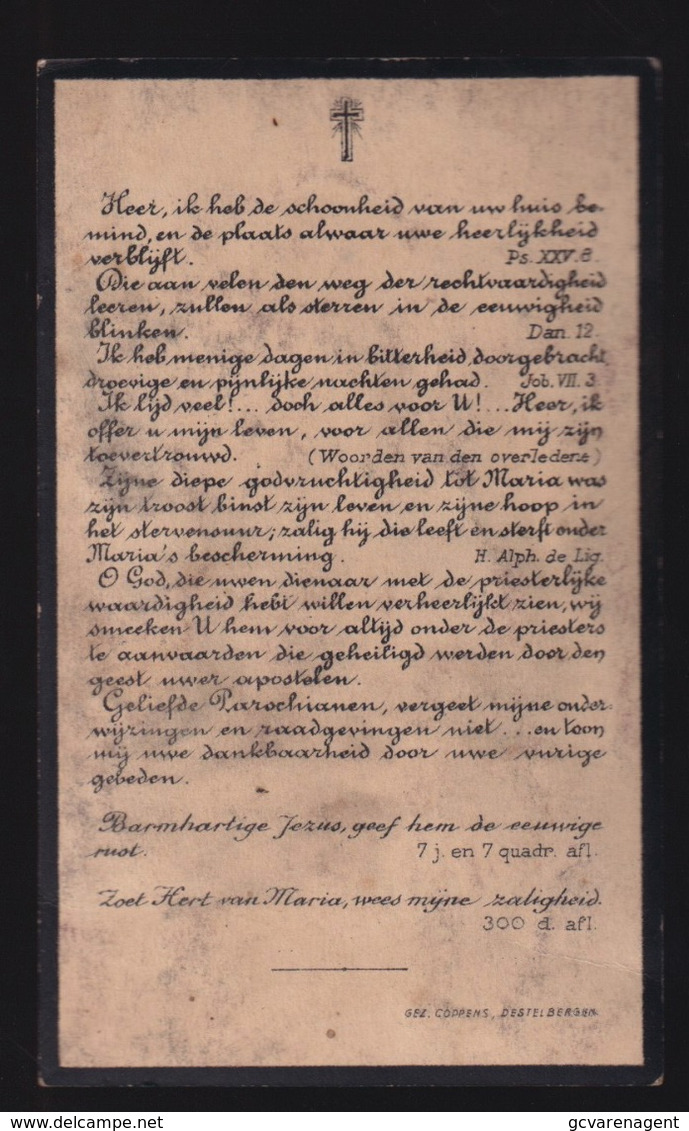 Heer, ik heb de schoonheid van uw huis be-
mind, en de plaats alwaar uwe heerlijkheid
verblijft. Ps. XXV. 8.
Die aan velen den weg der rechtvaardigheid
leeren, zullen als sterren in de eeuwigheid
blinken. Dan. 12.
Ik heb menige dagen in bitterheid doorgebracht,
droevige en pijnlijke nachten gehad. Job. VII. 3.
Ik lijd veel!... doch alles voor U!... Heer, ik
offer u mijn leven, voor allen die mij zijn
toevertrouwd. (Woorden van den overledene)
Zijne diepe godvruchtigheid tot Maria was
zijn troost binst zijn leven en zijne hoop in
het stervensuur; zalig hij die leeft en sterft onder
Maria's bescherming. H. Alph. de Lig.
O God, die uwen dienaar met de priesterlijke
waardigheid hebt willen verheerlijkt zien, wij
smeeken U hem voor altijd onder de priesters
te aanvaarden die geheiligd werden door den
geest uwer apostelen.
Geliefde Parochianen, vergeet mijne onder-
wijzingen en raadgevingen niet... en toon
mij uwe dankbaarheid door uwe vurige
gebeden.
Barmhartige Jezus, geef hem de eeuwige
rust. 7 j. en 7 quadr. afl.
Zoet Hert van Maria, wees mijne zaligheid.
300 d. afl.
GEZ. COPPENS, DESTELBERGEN.
www.delcampe.net gcvarenagent